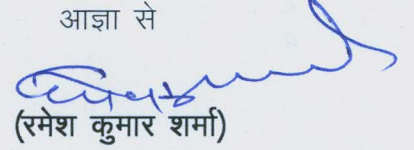 आज्ञा से
(रमेश कुमार शर्मा)